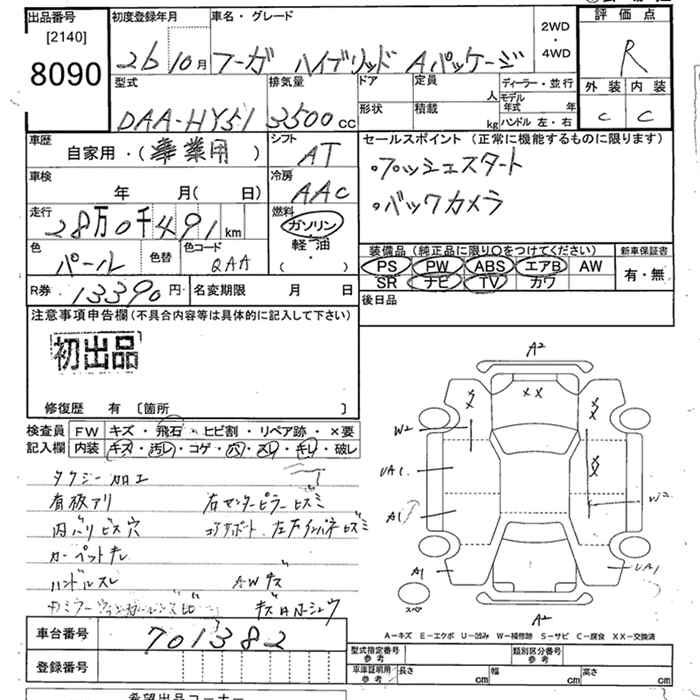 出品番号 初度登録年月 車名・グレード 2WD・4WD 評価点
[2140]
8090 26 10月 フーガ ハイブリッド Aパッケージ R
型式 排気量 ドア 定員 人 ディーラー・並行 外装 内装
DAA-HY51 3500cc 形状 積載 kg モデル年式 年 ハンドル 左・右 C C
車歴 自家用・(事業用) シフト AT セールスポイント (正常に機能するものに限ります)
・プッシュスタート
車検 年 月( 日) 冷房 AAC ・バックカメラ
走行 28万0千491km 燃料 ガソリン・軽油・( )
色 パール 色替 色コード QAA 装備品 (純正品に限り○をつけてください) 新車保証書
PS PW ABS エアB AW 有・無
SR ナビ TV カワ
R券 13390円 名変期限 月 日 後日品
注意事項申告欄 (不具合内容等は具体的に記入して下さい)
初出品
修復歴 有 [箇所 ]
検査員記入欄 FW キズ・飛石・ヒビ割・リペア跡・×要
内装 キズ・汚レ・コゲ・穴・スレ・キレ・破レ
タクシー加工
看板アリ 右センターピラービスミ
内バリビス穴 コアサポート
カーペットキレ
ハンドルスレ AWキズ
A2
XX
W2
UA1
A1
W2
A1 UA1
スペア
A2
A-キズ E-エクボ U-凹み W-補修跡 S-サビ C-腐食 XX-交換済
車台番号 701382
登録番号
型式指定番号 参考 類別区分番号 参考
車庫証明用 参考 長さ cm 幅 cm 高さ cm
希望出品コーナー